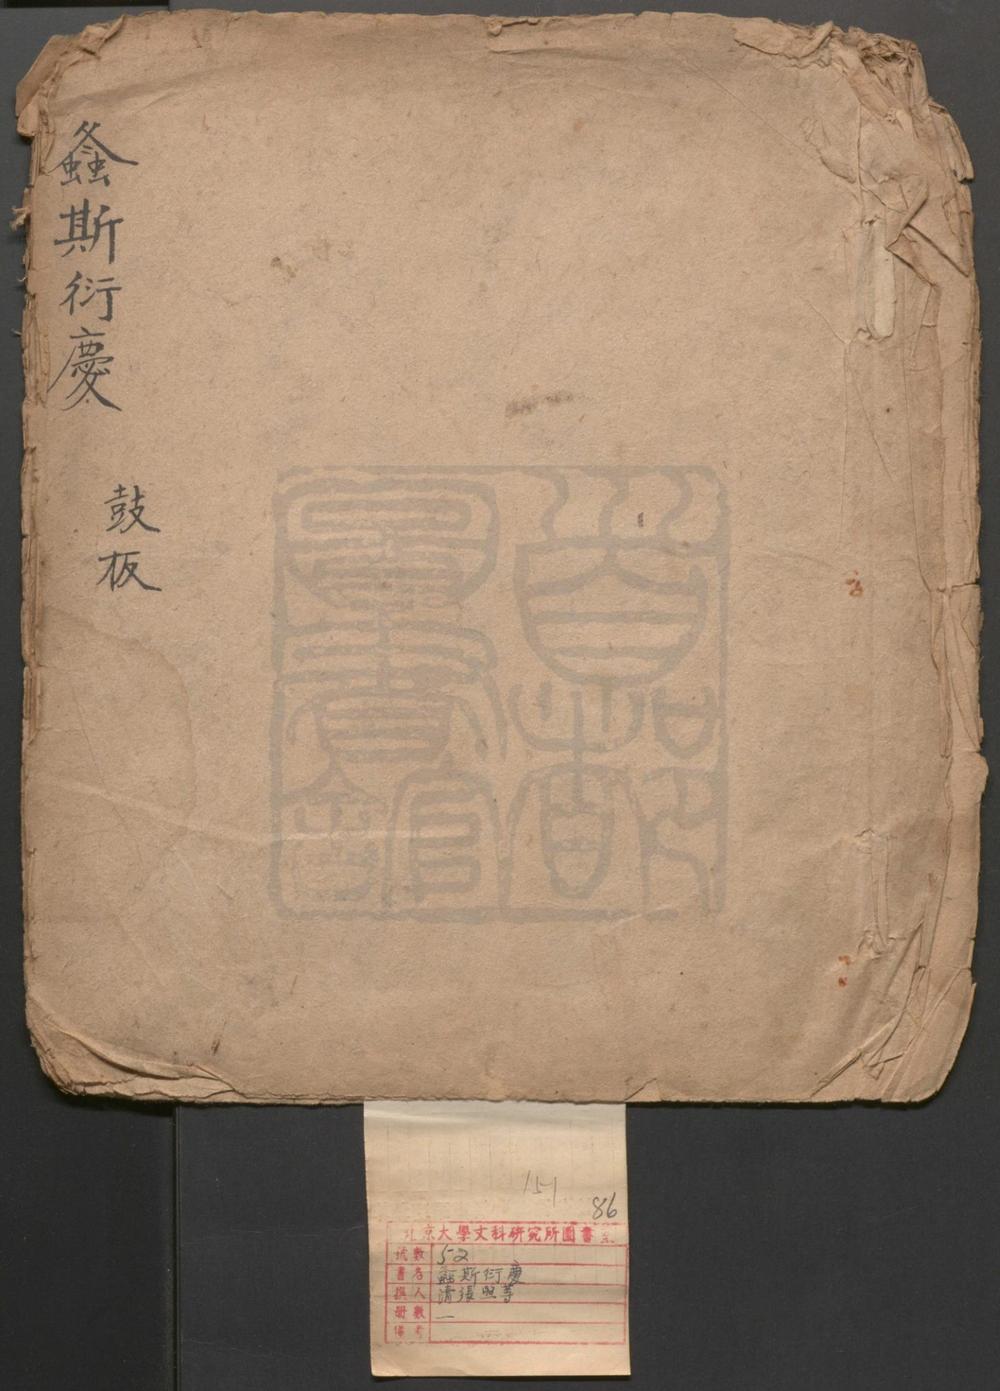 螽斯衍慶
鼓板
首都圖書館
151
86
北京大學文科研究所圖書室
號數 52
書名 螽斯衍慶
撰人 清張照等
冊數 一
備考